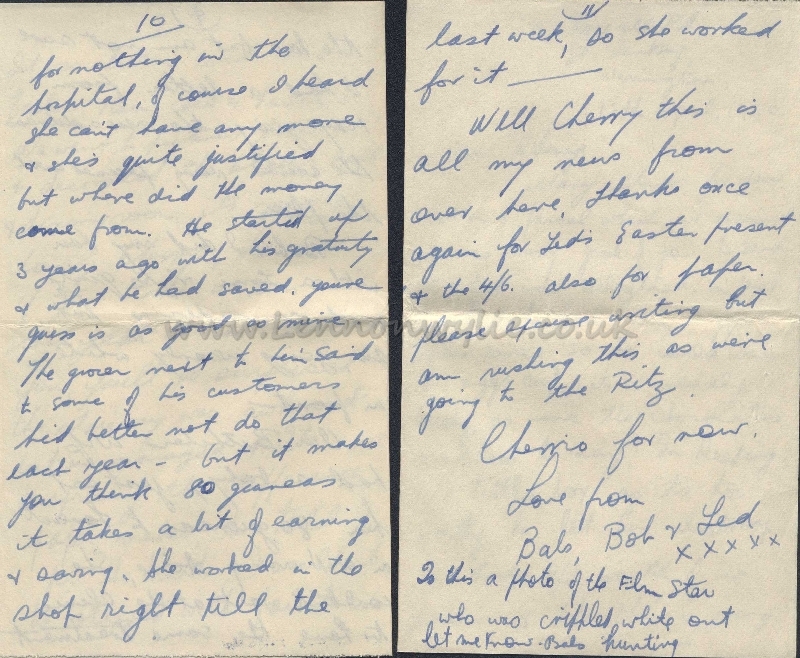 10
for nothing in the
hospital, of course I heard
she can't have any more
& she's quite justified
but where did the money
come from. He started up
3 years ago with his gratuity
& what he had saved. youre
guess is as good as mine
The grocer next to him said
to some of his customers
he'd better not do that
each year – but it makes
you think 80 guineas
it takes a bit of earning
& saving. She worked in the
shop right till the
11
last week, so she worked
for it ——
Well Cherry this is
all my news from
over here, thanks once
again for Ted's Easter present
& the 4/6. also for paper.
please excuse writing but
am rushing this as we're
going to the Ritz.
Cherrio for now.
Love from
Babs, Bob & Ted
x x x x x
Is this a photo of the Film Star
who was crippled, while out
let me know - Babs hunting
www.Lennonwylie.co.uk